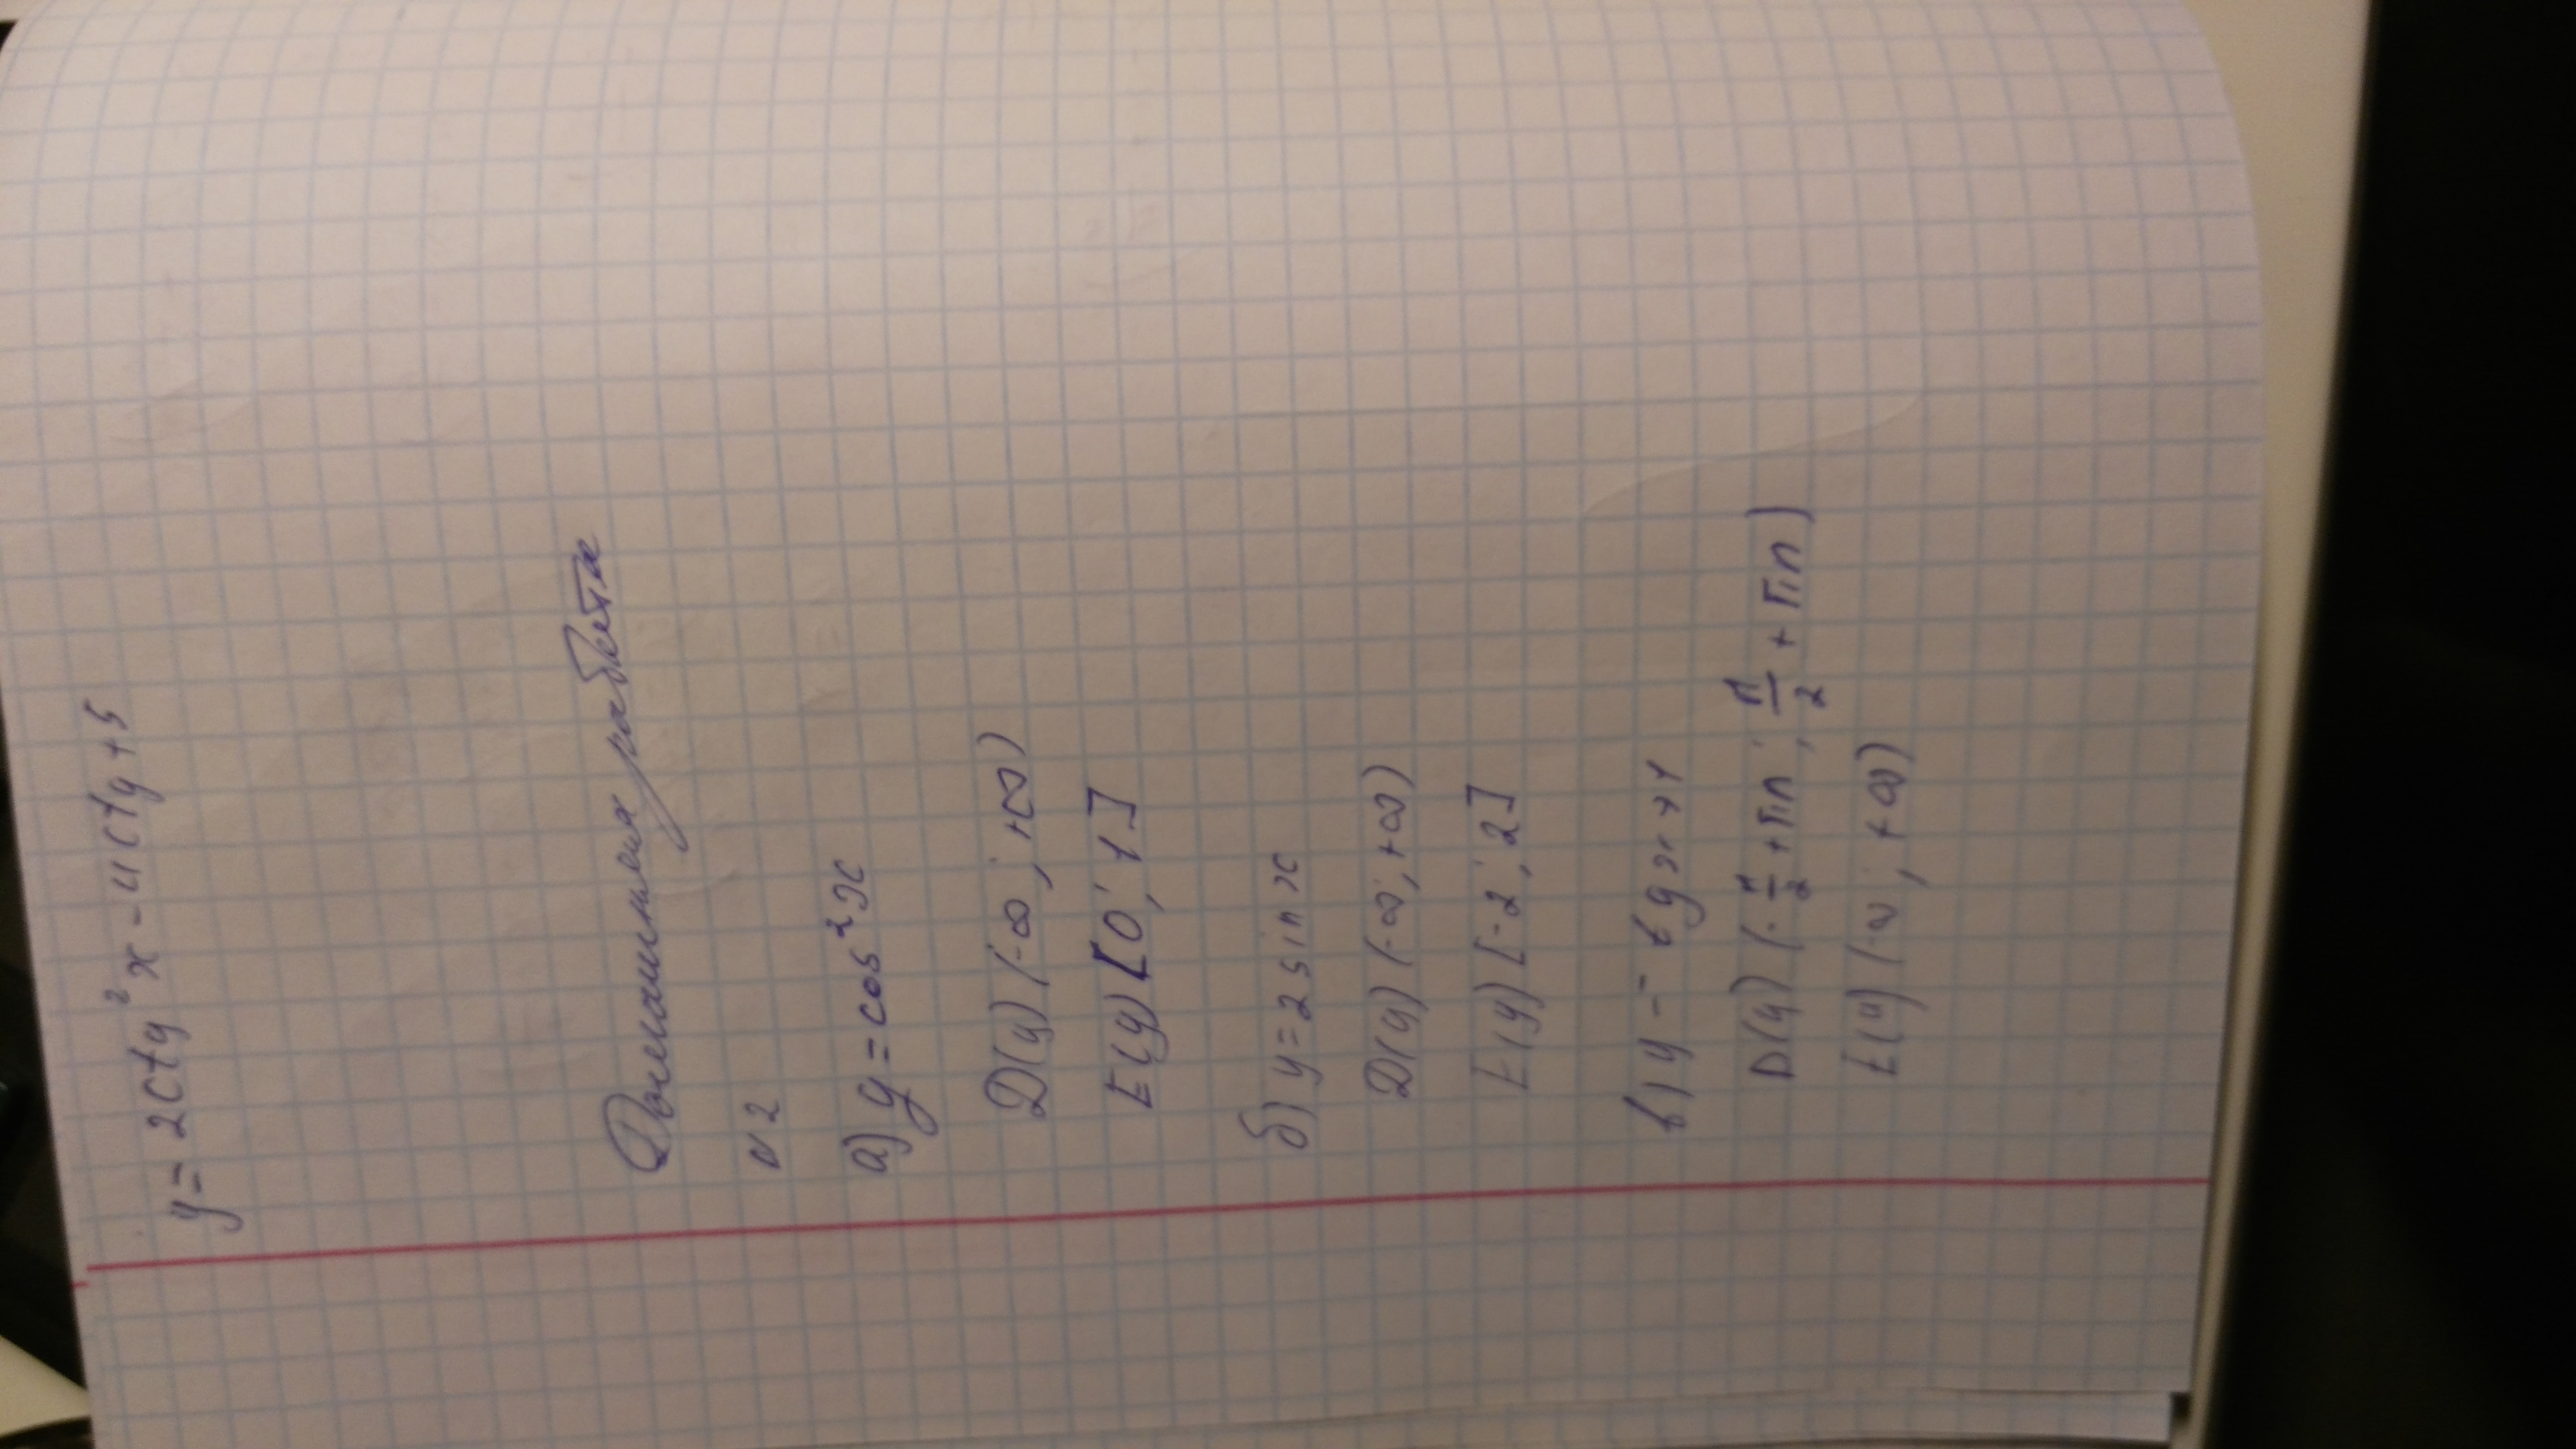 y = 2ctg²x - 4ctg + 5
Домашняя работа
№2
а) y = cos²x
D(y) (-∞; +∞)
E(y) [0; 1]
б) y = 2 sin x
D(y) (-∞; +∞)
E(y) [-2; 2]
в) y = tg x + 1
D(y) (-π/2 + πn; π/2 + πn)
E(y) (-∞; +∞)